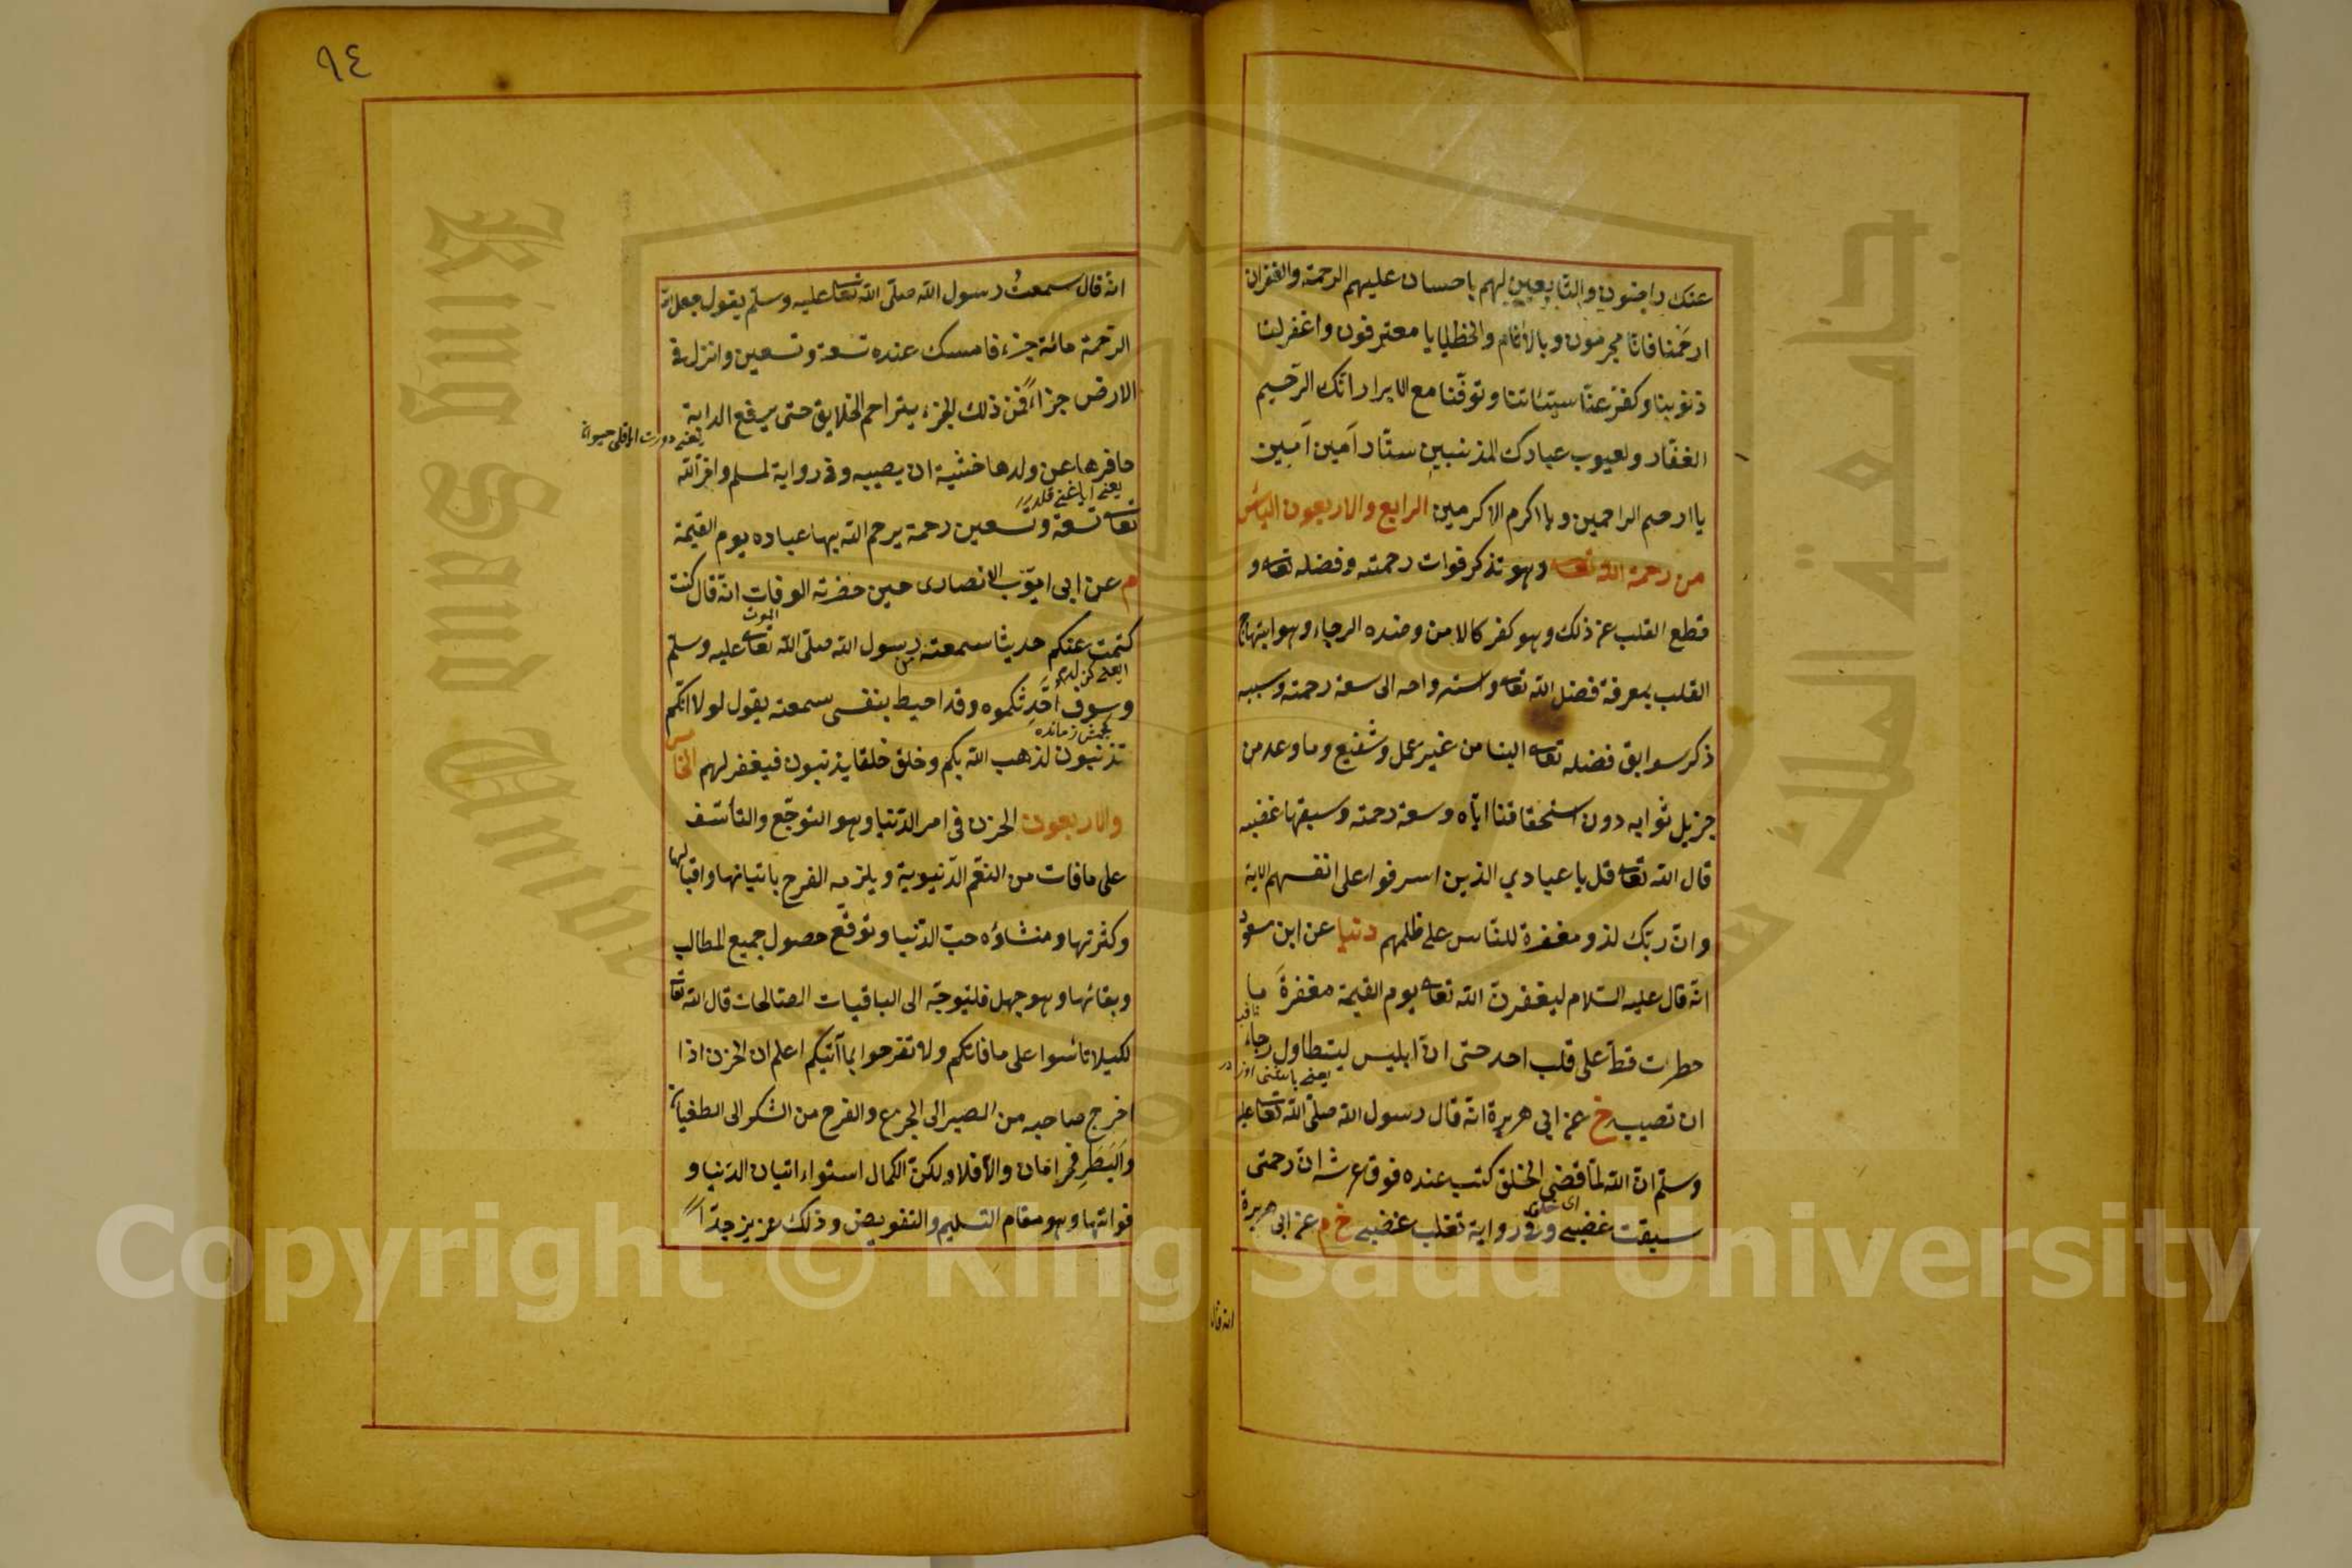 عنك راضون والتابعين لهم باحسان عليهم الرحمة والغفران
ارحمنا فانا مجرمون وبالاثام والخطايا معترفون واغفر لنا
ذنوبنا وكفر عنا سيئاتنا وتوفنا مع الابرار انك الرحيم
الغفار ولعيوب عبادك المذنبين ستار آمين آمين
يا ارحم الراحمين ويا اكرم الاكرمين الرابع والاربعون اليأس
من رحمة الله تعالى وهو تذكر فوات رحمته وفضله تعالى و
قطع القلب عن ذلك وهو كفر كالامن وضده الرجاء وهو ابتهاج
القلب بمعرفة فضل الله تعالى واسترواحه الى سعة رحمته وسببه
ذكر سوابق فضله تعالى الينا من غير عمل وشفيع وما وعد من
جزيل ثوابه دون استحقاقنا اياه وسعة رحمته وسبقها غضبه
قال الله تعالى قل يا عبادي الذين اسرفوا على انفسهم الاية
وان ربك لذو مغفرة للناس على ظلمهم دنيا عن ابن مسعود
انه قال عليه السلام ليغفرن الله تعالى يوم القيمة مغفرة ما
خطرت قط على قلب احد حتى ان ابليس ليتطاول رجاء
ان تصيبه خ عن ابى هريرة انه قال رسول الله صلى الله تعالى عليه
وسلم ان الله لما قضى الخلق كتب عنده فوق عرشه ان رحمتى
اى خلق
سبقت غضبى وفى رواية تغلب غضبى خ م عن ابى هريرة
انه قال
٩٤
انه قال سمعت رسول الله صلى الله تعالى عليه وسلم يقول جعل الله
الرحمة مائة جزء فامسك عنده تسعة وتسعين وانزل فى
الارض جزاءً فمن ذلك الجزء يتراحم الخلايق حتى يرفع الدابة
حافرها عن ولدها خشية ان يصيبه وفى رواية لمسلم واخر الله
تعالى تسعة وتسعين رحمة يرحم الله بها عباده يوم القيمة
م عن ابى ايوب الانصارى حين حضرته الوفات انه قال كنت
الموت
كتمت عنكم حديثا سمعته من رسول الله صلى الله تعالى عليه وسلم
وسوف احدثكموه وقد احيط بنفسى سمعته يقول لولا انكم
تذنبون لذهب الله بكم وخلق خلقا يذنبون فيغفر لهم الخامس
والاربعون الحزن فى امر الدنيا وهو التوجع والتأسف
على ما فات من النعم الدنيوية ويلزمه الفرح باتيانها واقبالها
وكثرتها ومنشاؤه حب الدنيا وتوقع حصول جميع المطالب
وبقائها وهو جهل فليتوجه الى الباقيات الصالحات قال الله تعالى
لكيلا تاسوا على ما فاتكم ولا تفرحوا بما آتيكم اعلم ان الحزن اذا
اخرج صاحبه من الصبر الى الجزع والفرح من الشكر الى الطغيان
والبطر فحرامان والا فلا ولكن الكمال استواء اتيان الدنيا و
فواتها وهو مقام التسليم والتفويض وذلك عزيز جدا
Copyright © King Saud University